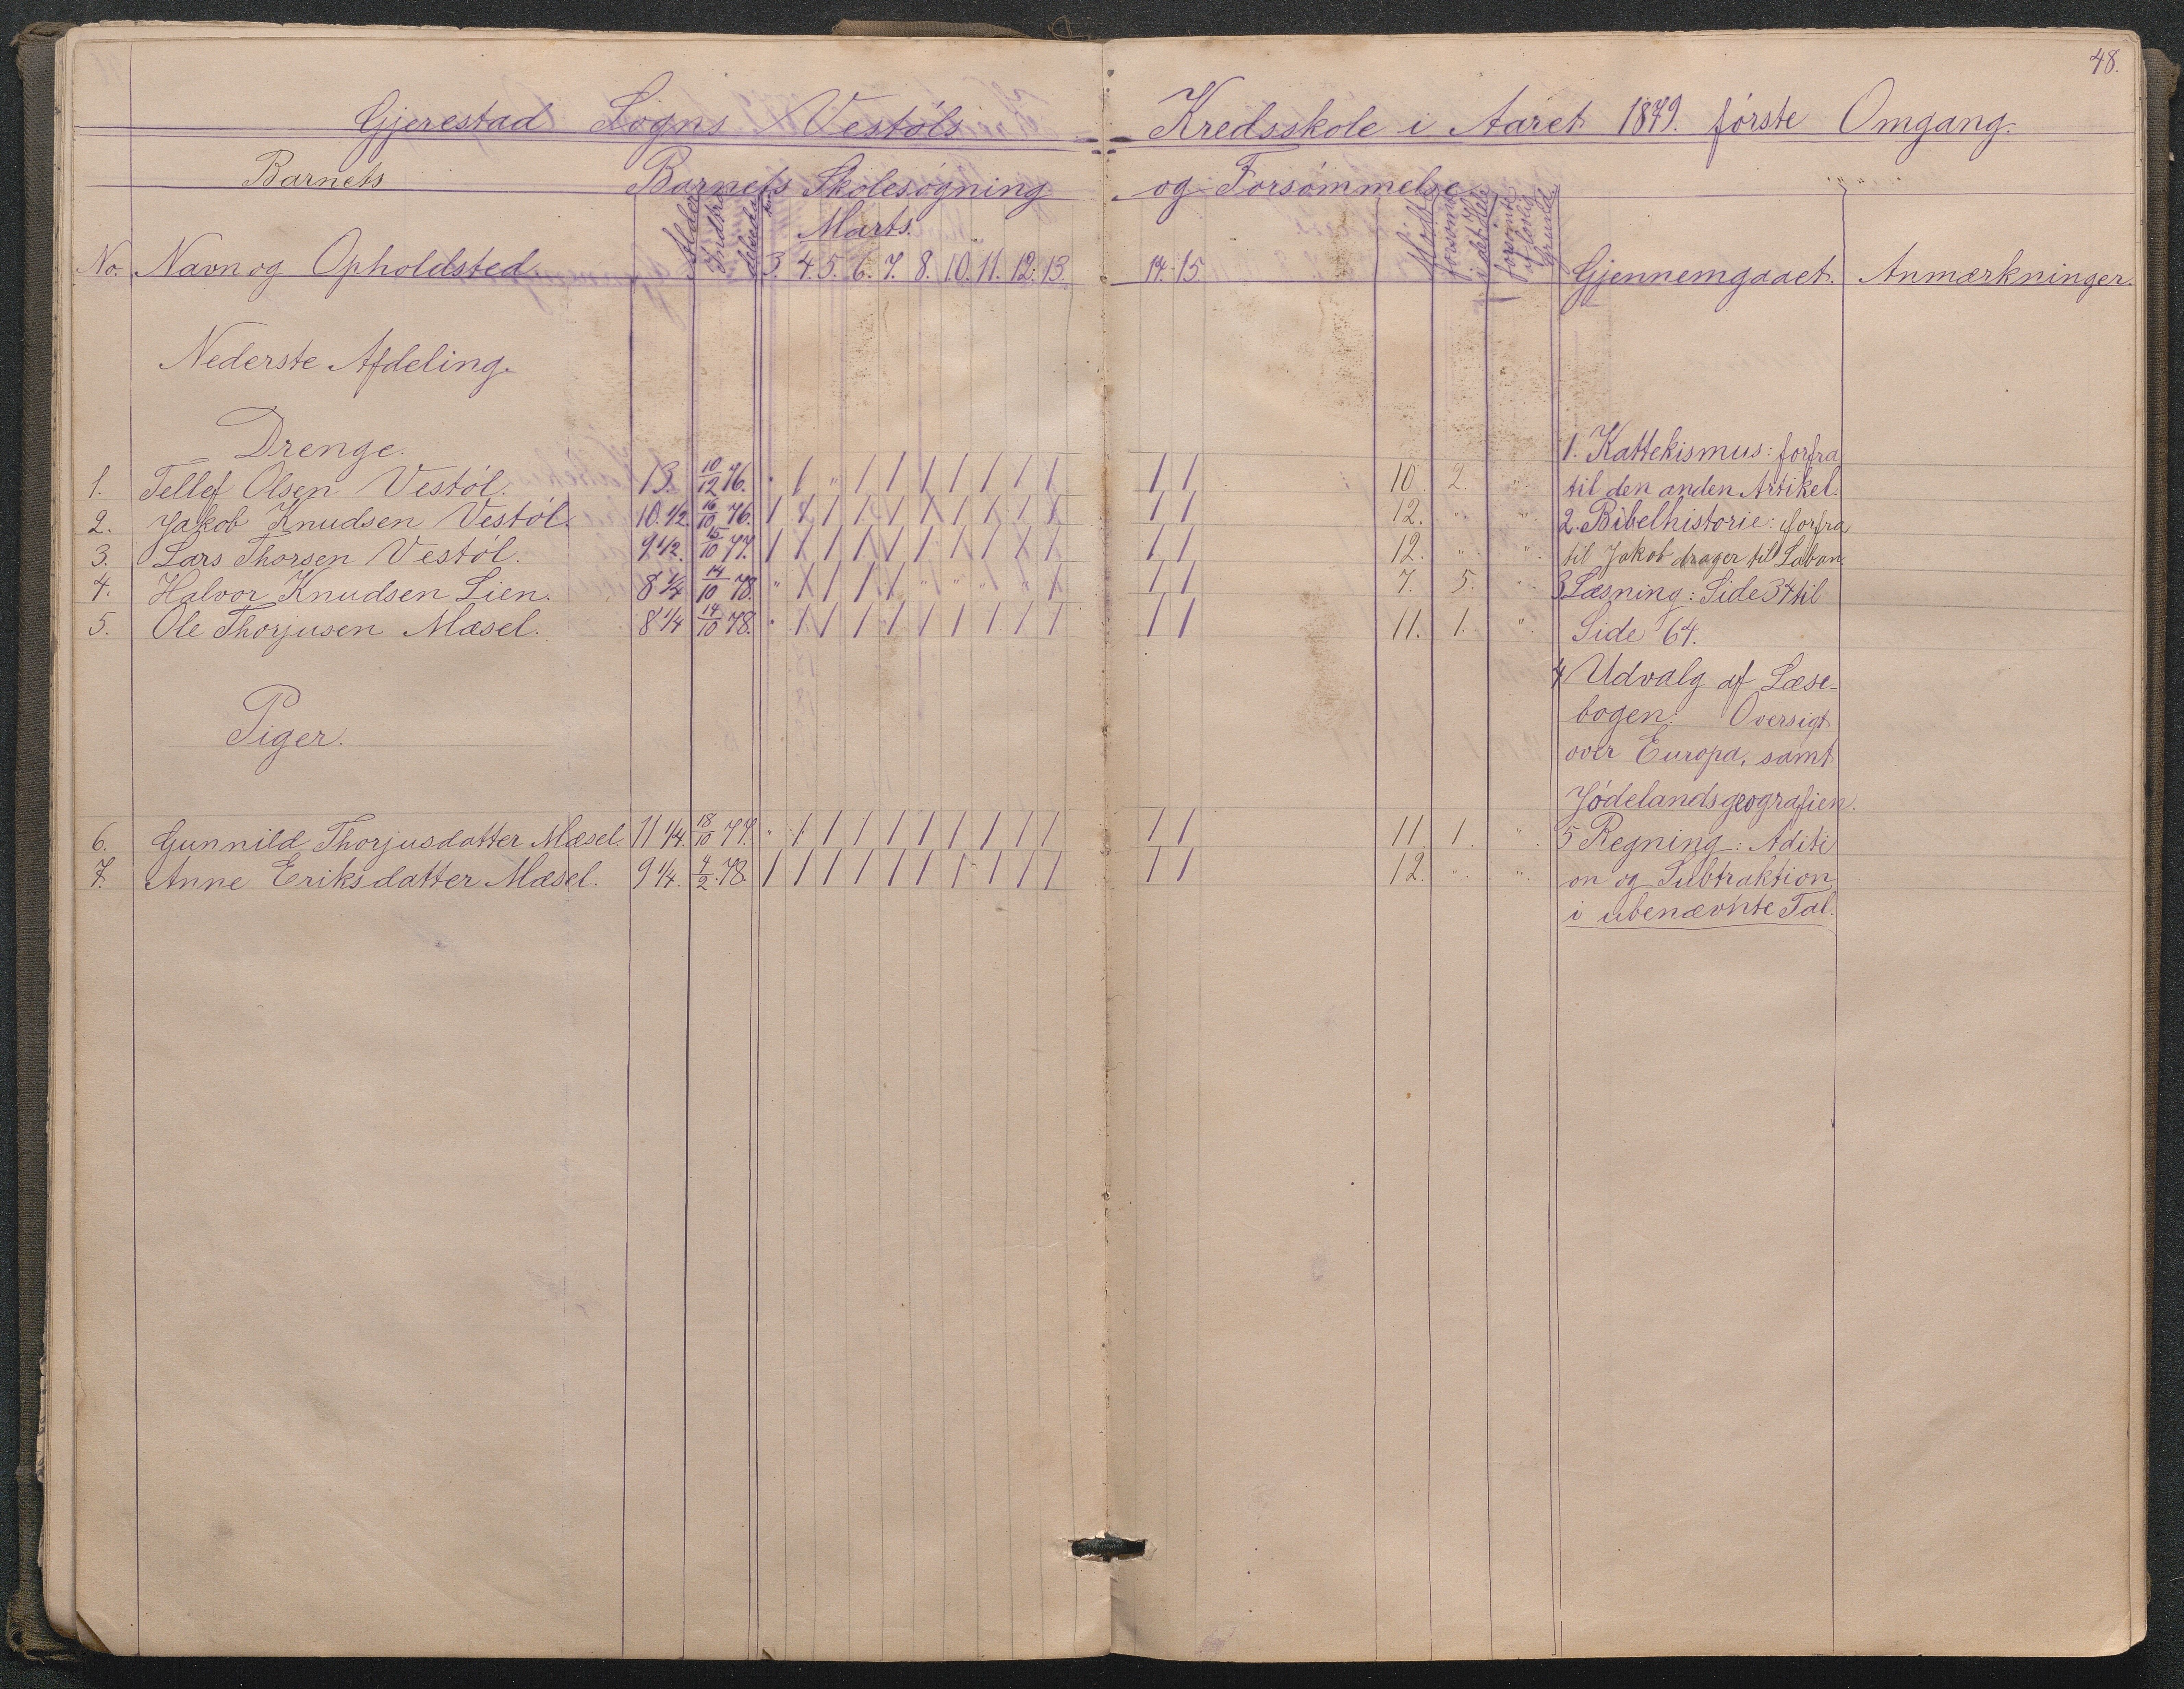 48.
Gjerestad Sogns Vestøls Kredsskole i Aaret 1879. første Omgang.
Barnets Barnets Skolesøgning og Forsømmelse.
Marts.
No. Navn og Opholdsted. Alder 3. 4. 5. 6. 7. 8. 10. 11. 12. 13. 14. 15. Mødt forsømt i det Hele forsømt uf lovlig Grund Gjennemgaaet. Anmærkninger.
Nederste Afdeling.
Drenge.
1. Tellef Olsen Vestøl. 13. 10/12 76. " / " / / / / / / / / / 10. 2. "
2. Jakob Knudsen Vestøl. 10. 1/2. 16/10 76. / / / / / / / / / / / / 12. " "
3. Lars Thorsen Vestøl. 9 1/2. 15/10 77. / / / / / / / / / / / / 12. " "
4. Halvor Knudsen Lien. 8 1/4 14/10 78. " / / / / " " " " / / / 7. 5. "
5. Ole Thorjusen Mæsel. 8 1/4 14/10 78. " / / / / / / / / / / / 11. 1. "
Piger.
6. Gunnild Thorjusdatter Mæsel. 11 1/4. 18/10 77. " / / / / / / / / / / / 11. 1. "
7. Anne Eriksdatter Mæsel. 9 1/4. 4/2. 78. / / / / / / / / / / / / 12. " "
1. Kattekismus: forfra
til den anden Artikel.
2. Bibelhistorie: forfra
til Jakob drager til Laban.
3 Læsning: Side 34 til
Side 64.
4 Udvalg af Læse-
bogen: Oversigt
over Europa, samt
Jødelandsgeografien.
5 Regning: Aditi
on og Subtraktion
i ubenævnte Tal.